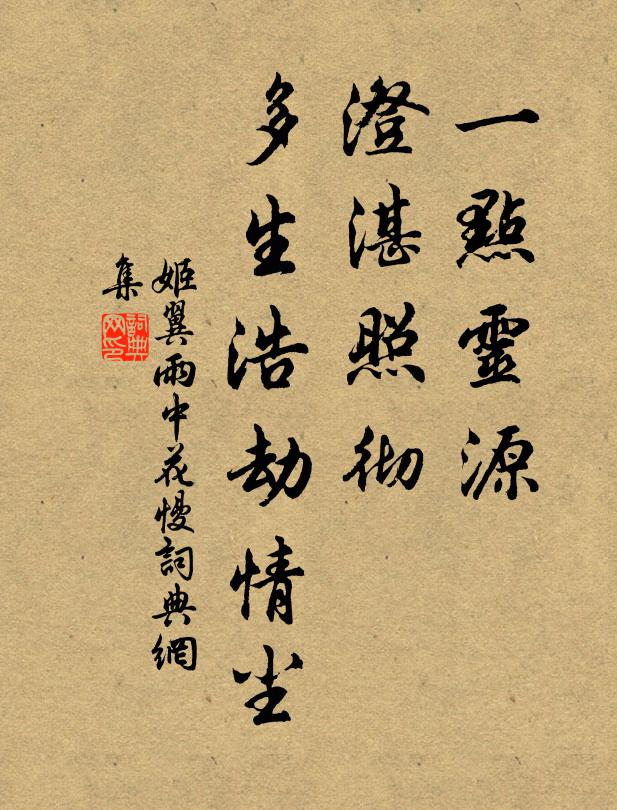 一點靈源
澄湛照彻
多生浩劫情尘
姬翼雨中花慢詞典網
集
詞典
网印